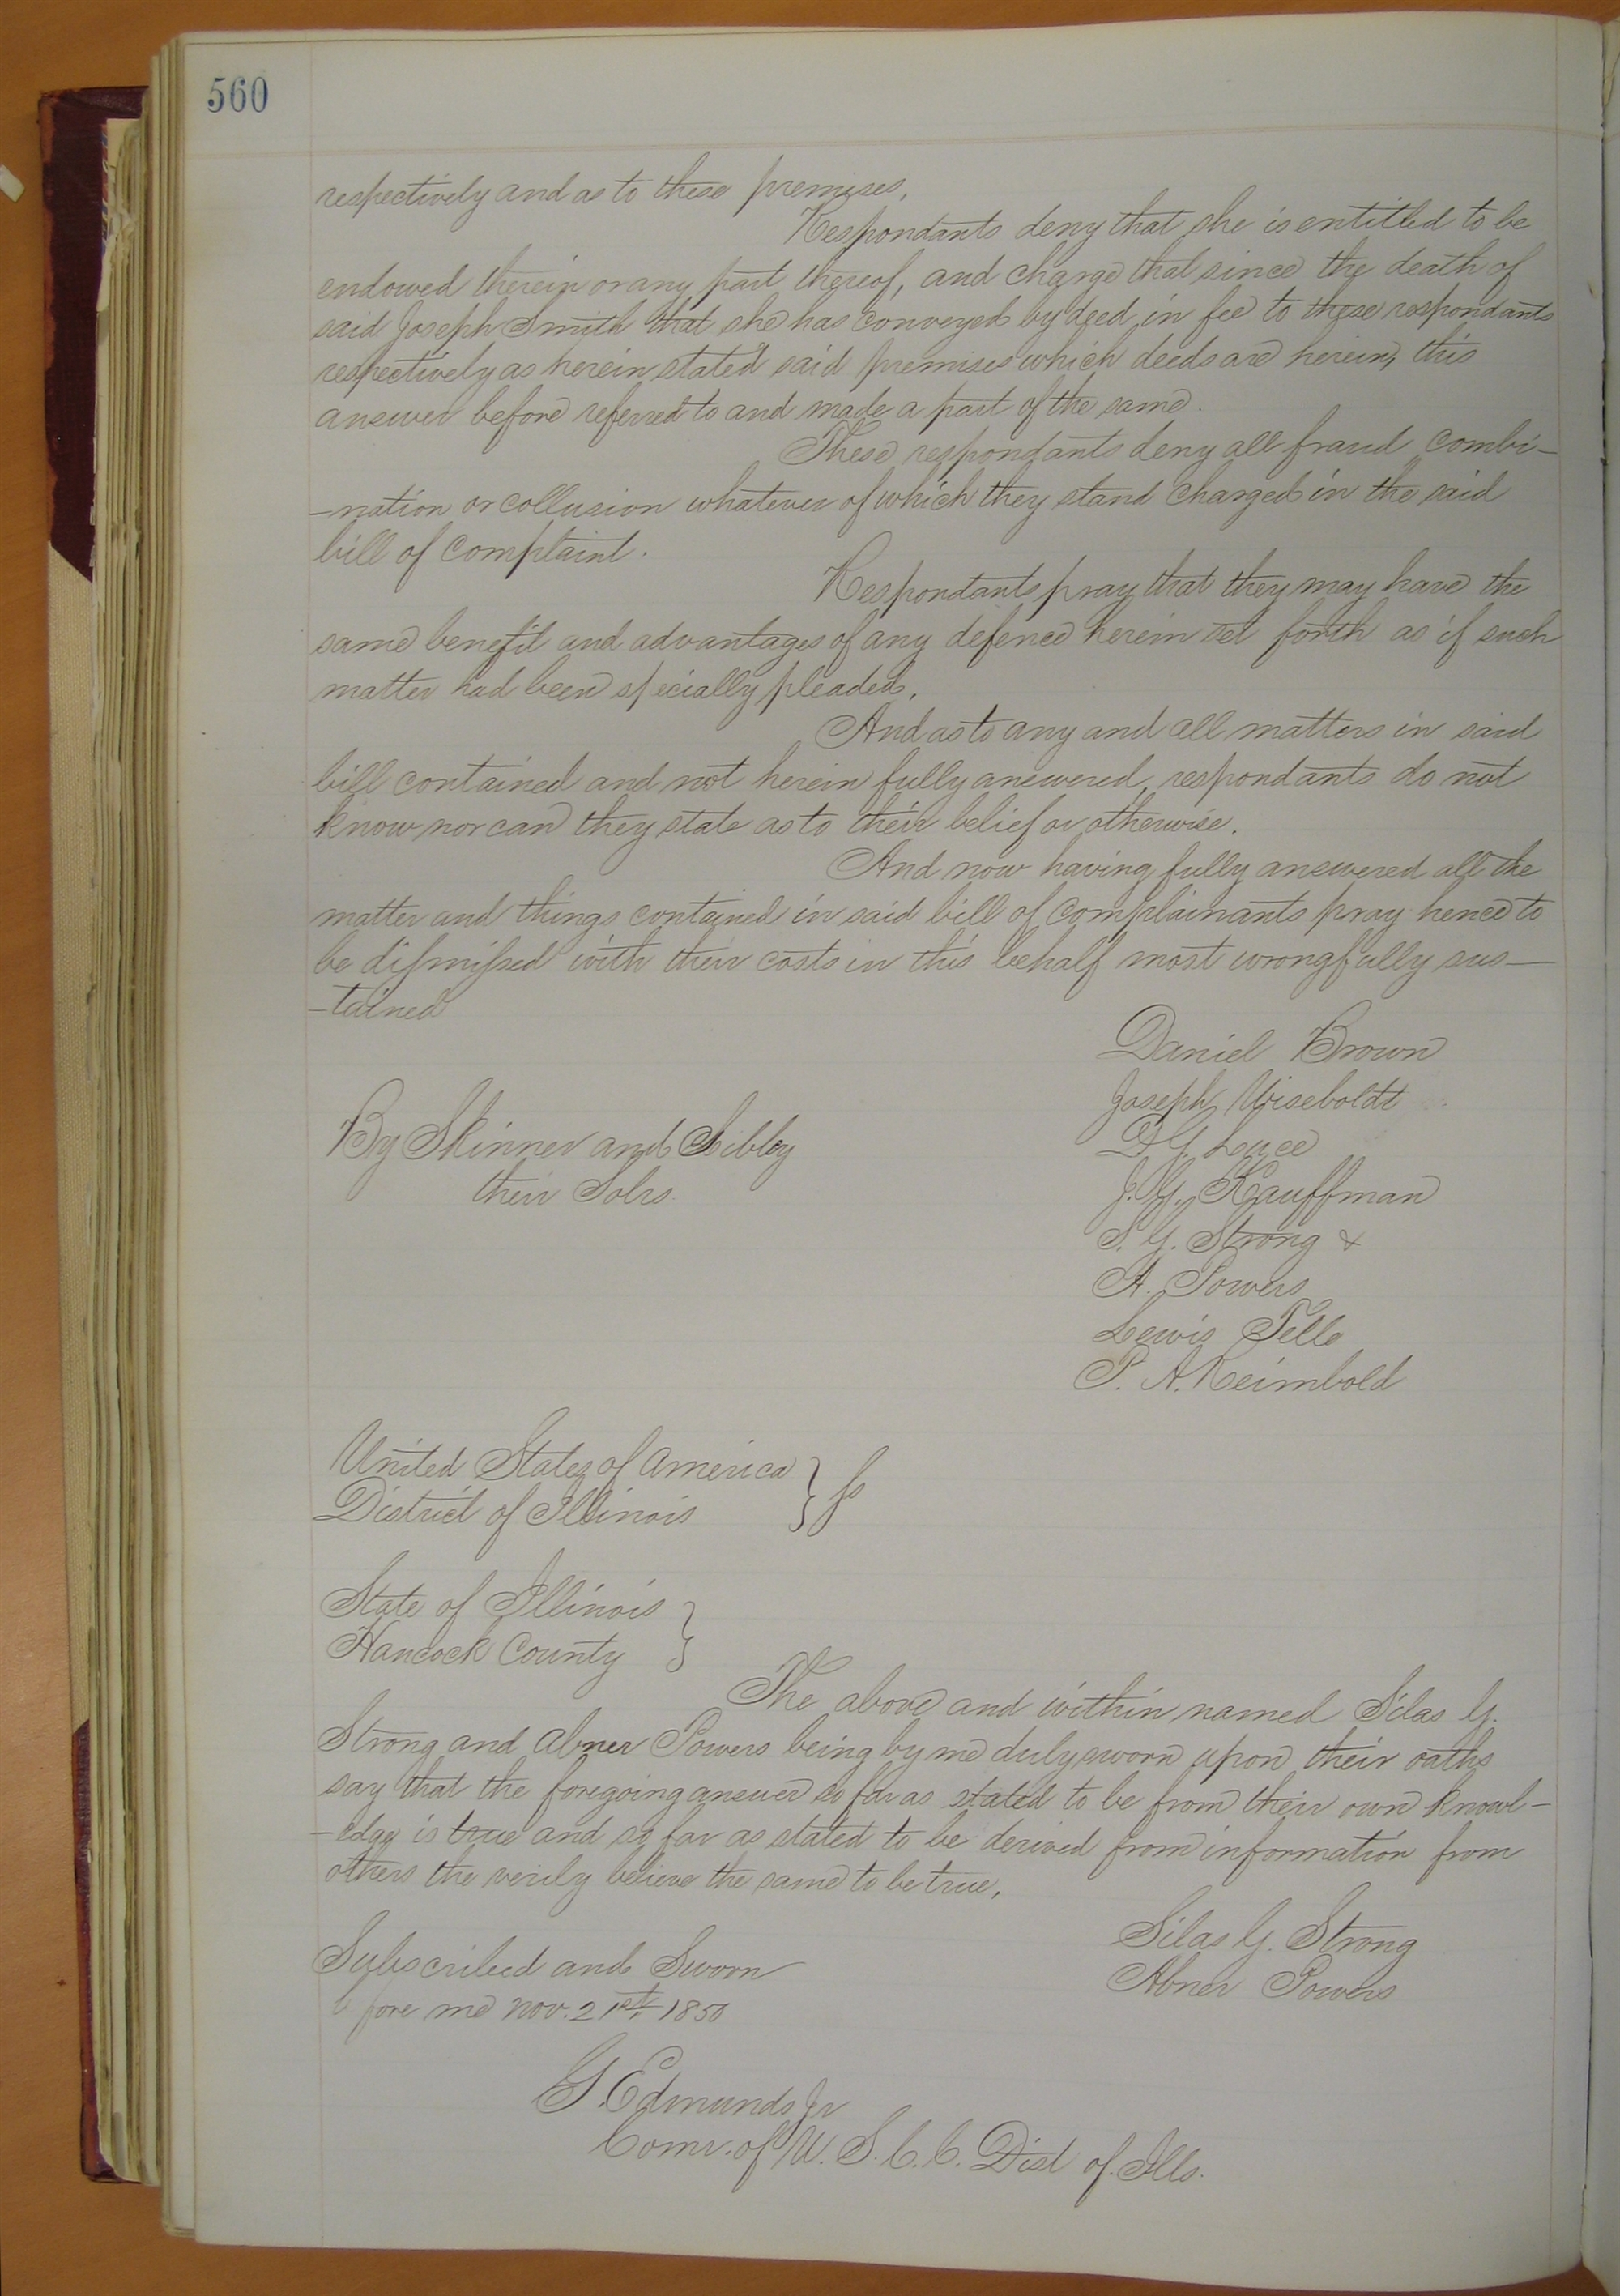 560
respectively and as to these premises.
Respondants deny that she is entitled to be
endowed therein or any part thereof, and charge that since the death of
said Joseph Smith that she has conveyed by deed in fee to these respondants
respectively as herein stated said premises which deeds are herein, this
answer before referred to and made a part of the same.
These respondants deny all fraud combi-
-nation or collusion whatever of which they stand charged in the said
bill of complaint.
Respondants pray that they may have the
same benefit and advantages of any defence herein set forth as if such
matter had been specially pleaded.
And as to any and all matters in said
bill contained and not herein fully answered, respondants do not
know nor can they state as to their belief or otherwise.
And now having fully answered all the
matter and things contained in said bill of complainants pray hence to
be dismissed with their costs in this behalf most wrongfully sus-
-tained
Daniel Brown
Joseph Wiseboldt
D. G. Luce
By Skinner and Sibley
their Solrs.
J. G. Kauffman
S. G. Strong &
A. Powers
Lewis Telle
P. A. Reimbold
United States of America } ss
District of Illinois
State of Illinois }
Hancock County
The above and within named Silas G.
Strong and Abner Powers being by me duly sworn upon their oaths
say that the foregoing answer so far as stated to be from their own knowl-
-edge is true and so far as stated to be derived from information from
others the verily believe the same to be true.
Silas G. Strong
Abner Powers
Subscribed and Sworn
before me Nov. 21st 1850
G. Edmunds Jr
Comr. of U. S. C. C. Dist of. Ills.